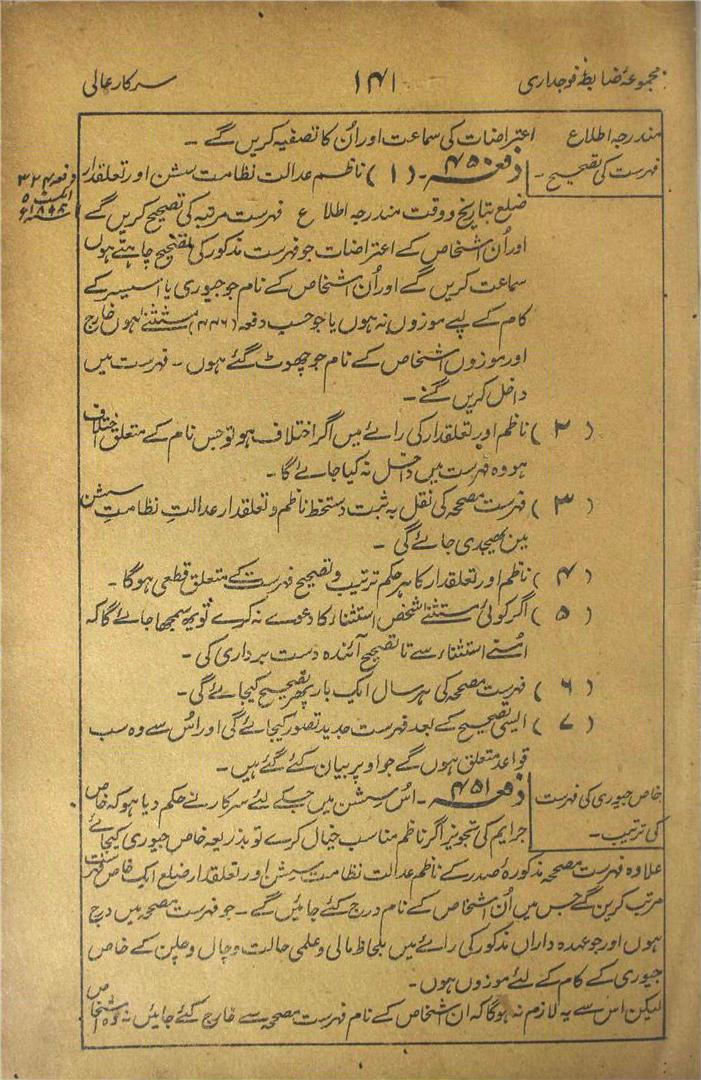 مجموعۂ ضابطۂ فوجداری
۱۴۱
سرکار عالی
مندرجہ اطلاع
فہرست کی تصحیح۔
اعتراضات کی سماعت اور اُن کا تصفیہ کریں گے ۔
دفعہ ۴۵۰۔ (۱) ناظم عدالت نظامت سشن اور تعلقدار
دفعہ ۳۲۴
ایکٹ ۵
۱۸۹۸ء
ضلع بتاریخ و وقت مندرجہ اطلاع فہرست مرتبہ کی تصحیح کریں گے
اور اُن اشخاص کے اعتراضات جو فہرست مذکور کی تصحیح چاہتے ہوں
سماعت کریں گے اور اُن اشخاص کے نام جو جیوری یا اسیسر کے
کام کے لیے موزوں نہ ہوں یا جو حسب دفعہ (۴۴۶) مستثنےٰ ہوں خارج
اور موزوں اشخاص کے نام جو چھوٹ گئے ہوں ۔ فہرست میں
داخل کریں گے ۔
(۲) ناظم اور تعلقدار کی رائے میں اگر اختلاف ہو تو جس نام کے متعلق اختلاف
ہو وہ فہرست میں داخل نہ کیا جائے گا ۔
(۳) فہرست مصححہ کی نقل بہ ثبت دستخط ناظم و تعلقدار عدالتِ نظامتِ سشن
میں بھیجدی جائے گی ۔
(۴) ناظم اور تعلقدار کا ہر حکم ترتیب و تصحیح فہرست کے متعلق قطعی ہوگا ۔
(۵) اگر کوئی مستثنےٰ شخص استثناء کا دعوے نہ کرے تو یہ سمجھا جائے گا کہ
اُسنے استثناء سے تا تصحیح آئندہ دست برداری کی ۔
(۶) فہرست مصححہ کی ہر سال ایک بار پھر تصحیح کیجائے گی ۔
(۷) ایسی تصحیح کے بعد فہرست جدید تصور کیجائے گی اور اُس سے وہ سب
قواعد متعلق ہوں گے جو اوپر بیان کئے گئے ہیں ۔
خاص جیوری کی فہرست
کی ترتیب ۔
دفعہ ۴۵۱ ۔ اُس سشن میں جسکے لئے سرکار نے حکم دیا ہو کہ خاص
جرایم کی تجویز اگر ناظم مناسب خیال کرے تو بذریعہ خاص جیوری کیجائے
علاوہ فہرست مصححہ مذکورۂ صدر کے ناظم عدالت نظامت سشن اور تعلقدار ضلع ایک خاص فہرست
مرتب کریں گے جس میں اُن اشخاص کے نام درج کئے جائیں گے ۔ جو فہرست مصححہ میں درج
ہوں اور جو عہدہ داراں مذکور کی رائے میں بلحاظ مالی و علمی حالت و چال و چلن کے خاص
جیوری کے کام کے لئے موزوں ہوں ۔
لیکن اس سے یہ لازم نہ ہوگا کہ ان اشخاص کے نام فہرست مصححہ سے خارج کئے جائیں نہ وہ اشخاص